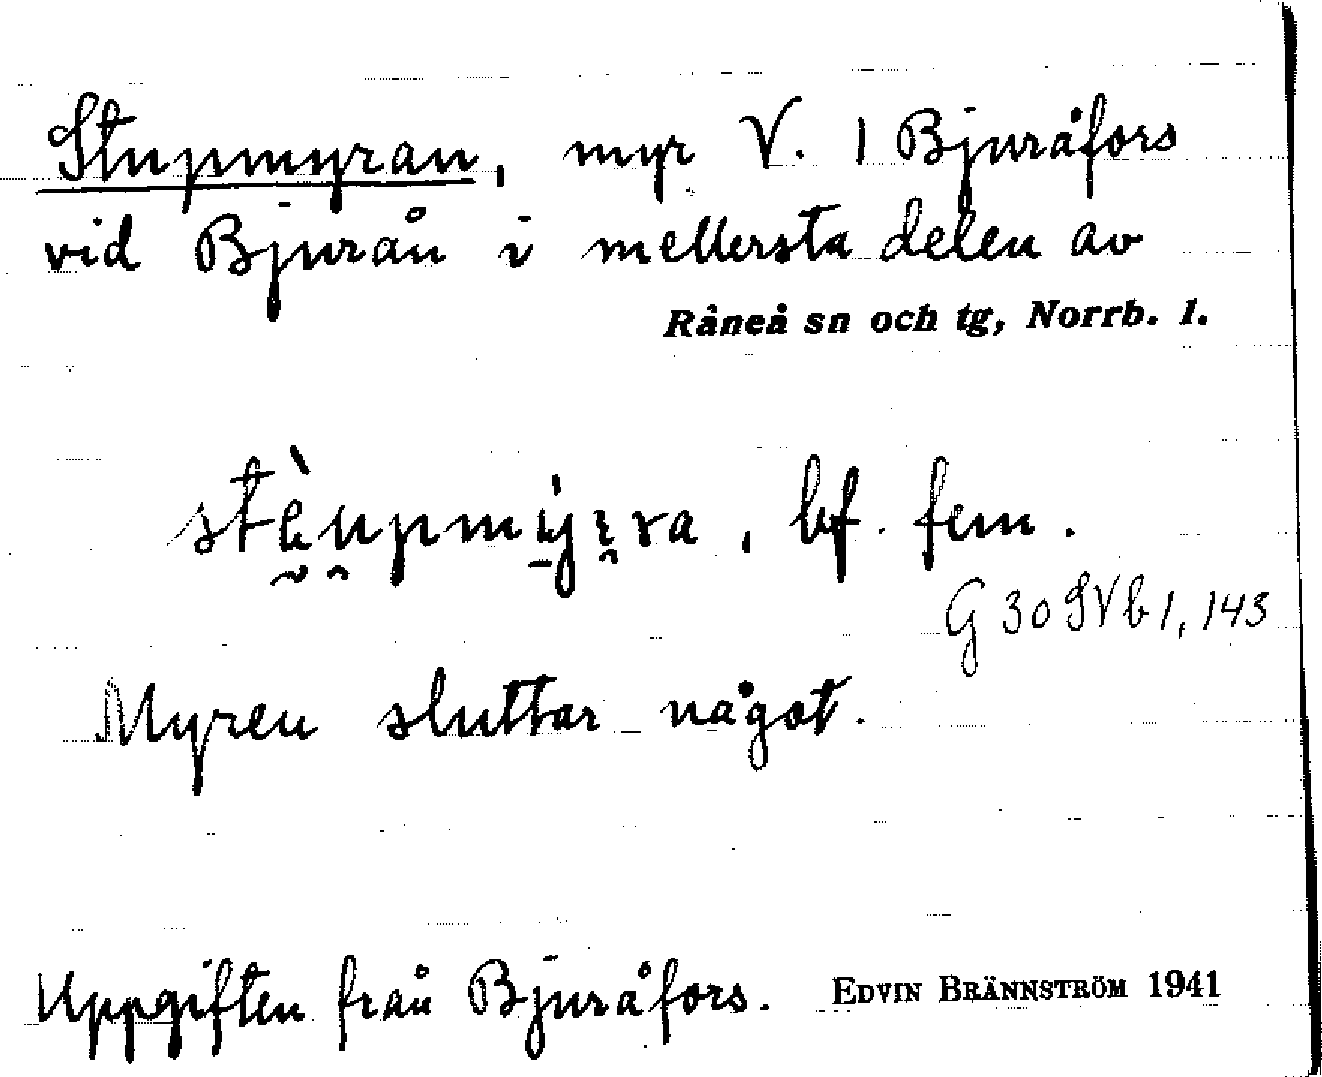 Stupmyran, myr V. 1 Bjuråfors
vid Bjurån i mellersta delen av
Råneå sn och tg, Norrb. l.
stè̯u̯pmy̠ı̯ra, bf. fem.
G 30 SV b 1, 143
Myren sluttar något.
Uppgiften från Bjuråfors. EDVIN BRÄNNSTRÖM 1941